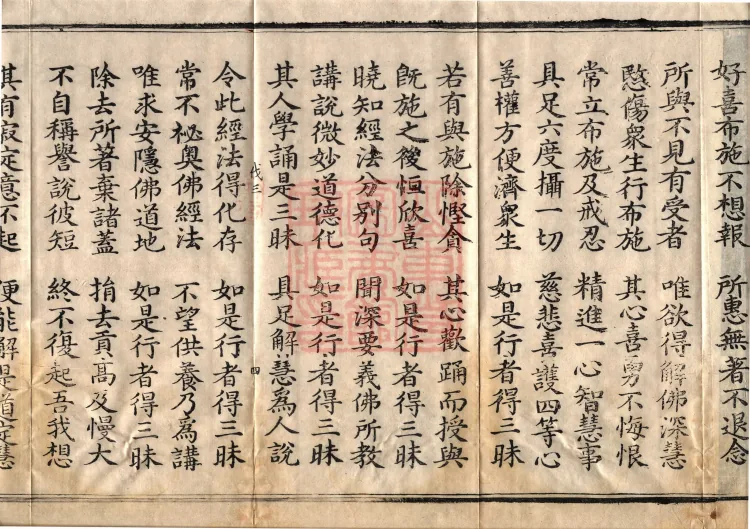 好喜布施不想報　所惠無著不退念
所與不見有受者　唯欲得解佛深慧
愍傷衆生行布施　其心喜勇不悔恨
常立布施及戒忍　精進一心智慧事
具足六度攝一切　慈悲喜護四等心
善權方便濟衆生　如是行者得三昧
若有與施除慳貪　其心歡踊而授與
旣施之後恒欣喜　如是行者得三昧
曉知經法分別句　聞深要義佛所教
講說微妙道德化　如是行者得三昧
其人學誦是三昧　具足解慧爲人說
伐三　四
令此經法得化存　如是行者得三昧
常不祕奧佛經法　不望供養乃爲講
唯求安隱佛道地　如是行者得三昧
除去所著棄諸蓋　捐去貢高及慢大
不自稱譽說彼短　終不復起吾我想
其有寂定意不起　便能解是道定慧